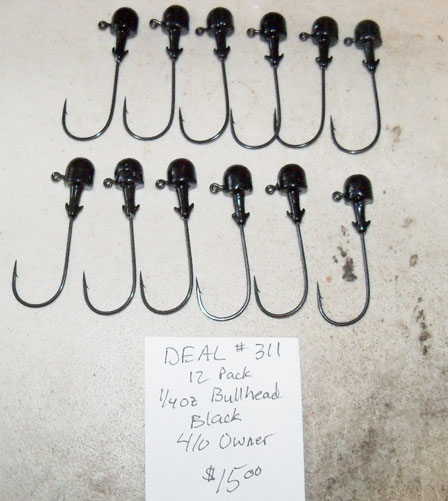 DEAL # 311
12 Pack
1/4oz Bullhead
Black
4/0 Owner
$15.00